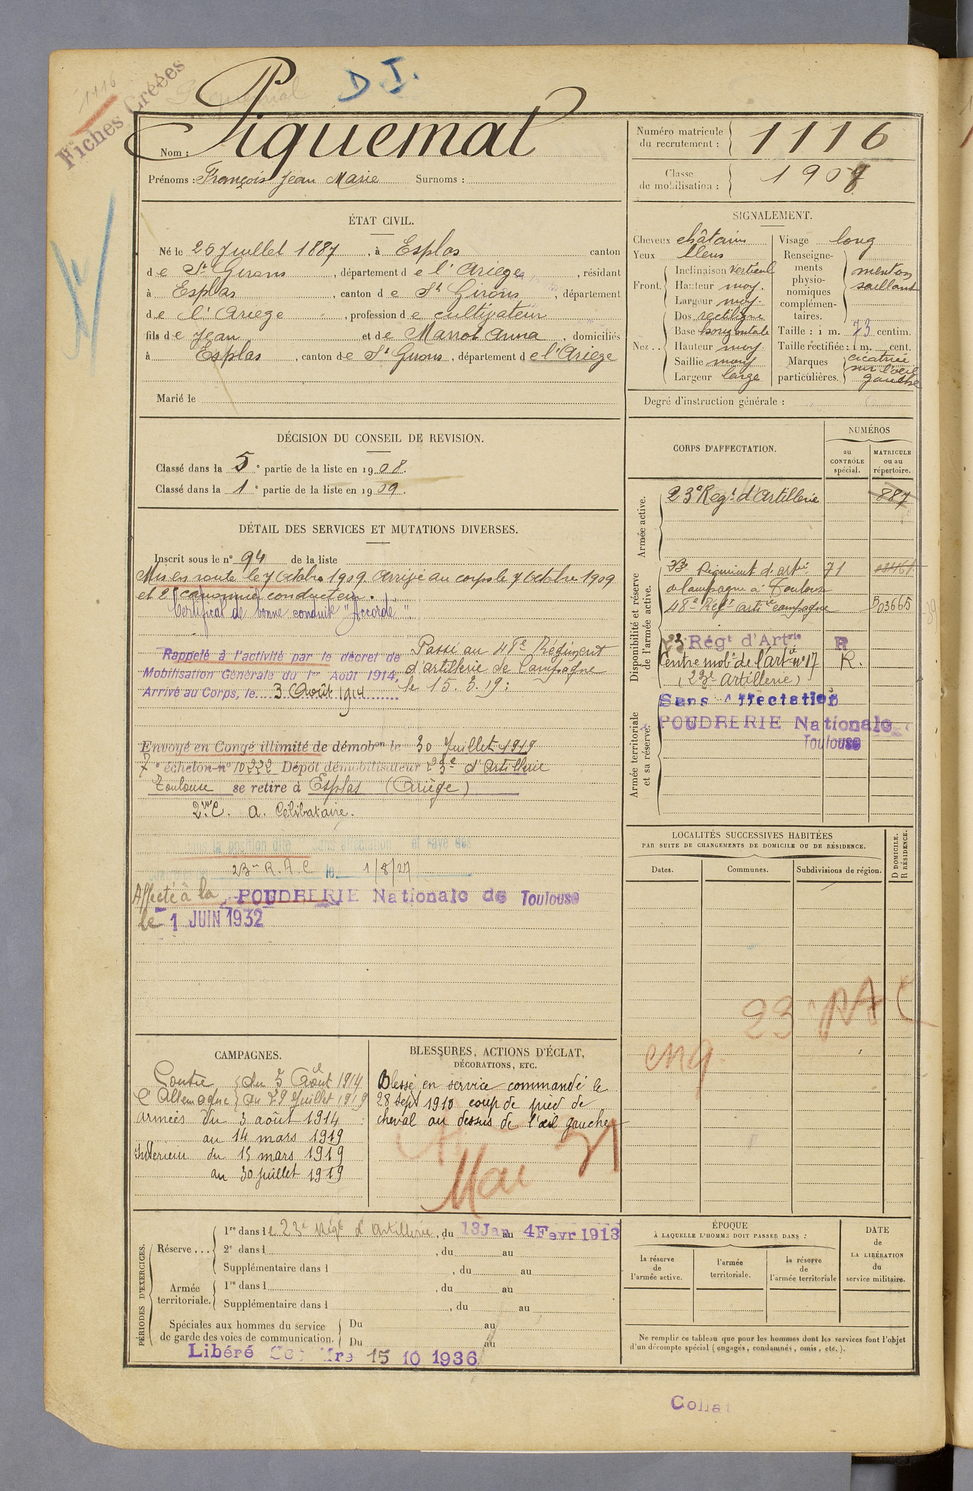 1116
Fiches Créées
D.I.
Nom : Piquemal
Prénoms : François Jean Marie Surnoms :
Numéro matricule du recrutement : 1116
Classe de mobilisation : 1907
ÉTAT CIVIL.
Né le 26 Juillet 1887, à Esplas canton
de St Girons, département de l'Ariège, résidant
à Esplas, canton de St Girons, département
de l'Ariège, profession de cultivateur
fils de Jean et de Marrot Anna, domiciliés
à Esplas, canton de St Girons, département de l'Ariège
Marié le
SIGNALEMENT.
Cheveux châtains
Yeux bleus
Front. Inclinaison vertical
Hauteur moy.
Largeur moy.
Nez .. Dos rectiligne
Base horizontale
Hauteur moy
Saillie moy
Largeur large
Visage long
Renseignements physionomiques complémentaires. menton saillant
Taille : 1 m. 73 centim.
Taille rectifiée : 1 m. cent.
Marques particulières. cicatrice sur l'œil gauche
Degré d'instruction générale :
DÉCISION DU CONSEIL DE REVISION.
Classé dans la 5e partie de la liste en 1908.
Classé dans la 1e partie de la liste en 1909.
DÉTAIL DES SERVICES ET MUTATIONS DIVERSES.
Inscrit sous le n° 94 de la liste
Mis en route le 7 octobre 1909. Arrivé au corps le 7 octobre 1909
et 2e canonnier conducteur.
Certificat de bonne conduite "Accordé"
Rappelé à l'activité par le décret de
Mobilisation Générale du 1er Août 1914,
Arrivé au Corps, le 3 Août 1914
Passé au 48e Régiment
d'artillerie de Campagne
le 15.3.19
Envoyé en Congé illimité de démobon le 30 Juillet 1919
7e échelon n° 10222 Dépôt démobilisateur 23e d'Artillerie
Toulouse se retire à Esplas (Ariège)
a. Célibataire.
23me R.A.C le 1/8/27
Affecté à la POUDRERIE Nationale de Toulouse
le 1 JUIN 1932
CORPS D'AFFECTATION.
NUMÉROS
au CONTRÔLE spécial.
MATRICULE ou au répertoire.
Armée active.
23e Regt d'Artillerie 887
Disponibilité et réserve de l'armée active.
Régiment d'artie 71
de campagne à Toulouse
48e Régt artie campagne 303665
23 Régt d'Artrie R
Centre mobe de l'artie n° 17 R.
(23e Artillerie)
Armée territoriale et sa réserve.
Sans Affectation
POUDRERIE Nationale
Toulouse
LOCALITÉS SUCCESSIVES HABITÉES
PAR SUITE DE CHANGEMENTS DE DOMICILE OU DE RÉSIDENCE.
Dates. Communes. Subdivisions de région.
D DOMICILE. R RÉSIDENCE.
23 RAC
eng
CAMPAGNES.
Contre l'Allemagne du 3 Août 1914
au 29 Juillet 1919
Armées du 3 août 1914
au 14 mars 1919
Intérieur du 15 mars 1919
au 30 juillet 1919
BLESSURES, ACTIONS D'ÉCLAT,
DÉCORATIONS, ETC.
Blessé en service commandé le
28 sept 1910 coup de pied de
cheval au dessus de l'œil gauche
Mai 31
PÉRIODES D'EXERCICES.
Réserve ... 1re dans le 23e Régt d'Artillerie, du 13 Jan au 4 Fevr 1913
2e dans l , du au
Supplémentaire dans l , du au
Armée territoriale. 1re dans l , du au
Supplémentaire dans l , du au
Spéciales aux hommes du service de garde des voies de communication. Du au
Du au
Libéré 15 10 1936
ÉPOQUE
À LAQUELLE L'HOMME DOIT PASSER DANS :
la réserve de l'armée active.
l'armée territoriale.
la réserve de l'armée territoriale
DATE de LA LIBÉRATION du service militaire.
Ne remplir ce tableau que pour les hommes dont les services font l'objet
d'un décompte spécial (engagés, condamnés, omis, etc.).